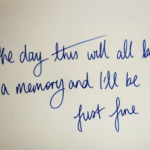 the day this will all be
a memory and I'll be
just fine